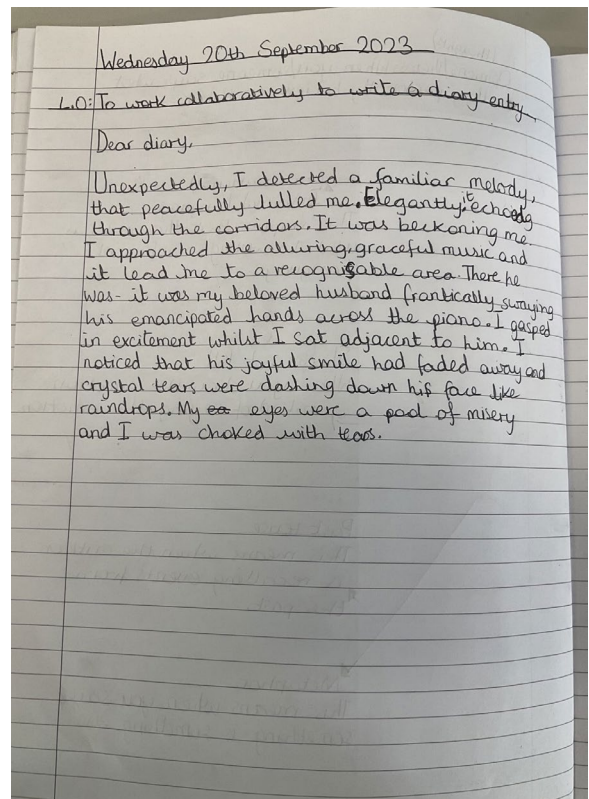 Wednesday 20th September 2023
L.O: To work collaboratively to write a diary entry.
Dear diary,
Unexpectedly, I detected a familiar melody,
that peacefully lulled me. Elegantly, it echoed
through the corridors. It was beckoning me.
I approached the alluring, graceful music and
it lead me to a recognisable area. There he
was- it was my beloved husband frantically swaying
his emancipated hands across the piano. I gasped
in excitement whilst I sat adjacent to him. I
noticed that his joyful smile had faded away and
crystal tears were dashing down his face like
raindrops. My eyes were a pool of misery
and I was choked with tears.